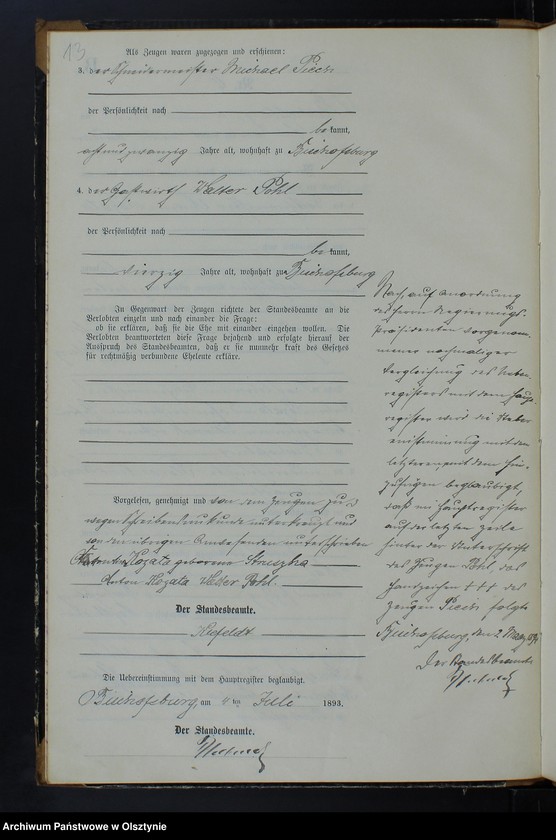 13
Als Zeugen waren zugezogen und erschienen:
3. der Schneidermeister Michael Piech
der Persönlichkeit nach
be kannt,
achtundzwanzig Jahre alt, wohnhaft zu Bischofsburg
4. der Gastwirth Walter Pohl
der Persönlichkeit nach
be kannt,
vierzig Jahre alt, wohnhaft zu Bischofsburg
In Gegenwart der Zeugen richtete der Standesbeamte an die
Verlobten einzeln und nach einander die Frage:
ob sie erklären, daß sie die Ehe mit einander eingehen wollen. Die
Verlobten beantworteten diese Frage bejahend und erfolgte hierauf der
Ausspruch des Standesbeamten, daß er sie nunmehr kraft des Gesetzes
für rechtmäßig verbundene Eheleute erkläre.
Vorgelesen, genehmigt und von dem Zeugen zu 3
wegen Schreibensunkunde unterkreuzt und
von den übrigen Anwesenden unterschrieben
Kozata geborene
Anton Kozata Walter Pohl
Der Standesbeamte.
Die Uebereinstimmung mit dem Hauptregister beglaubigt.
Bischofsburg, am ten Juli 1893.
Der Standesbeamte.
Nach, auf Anordnung
des Herrn Regierungs-
Präsidenten vorgenom-
mener nochmaliger
Vergleichung des Neben-
registers mit dem Haupt-
register wird die Ueber-
einstimmung mit dem
letzteren mit dem Hin-
zufügen beglaubigt,
daß im Hauptregister
auf der letzten Zeile
hinter der Unterschrift
des Zeugen Pohl, das
Handzeichen +++ des
Zeugen Piech folgt.
Bischofsburg, den 2
Der Standesbeamte
Archiwum Państwowe w Olsztynie